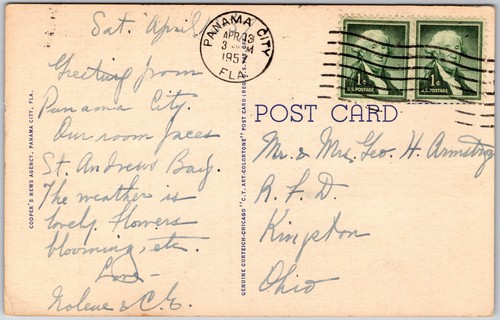 Sat. April
Greeting from
Panama City.
Our room faces
St. Andrews Bay.
The weather is
lovely flowers
blooming, etc.
Love—
Nolene & C.E.
COOPER'S NEWS AGENCY, PANAMA CITY, FLA.
GENUINE CURTEICH-CHICAGO "C.T. ART-COLORTONE" POST CARD (REG.
PANAMA CITY
APR 13
3 PM
1957
FLA.
1¢
U.S. POSTAGE
1¢
U.S. POSTAGE
POST CARD
Mr. & Mrs. Geo. H. Armstrong
R. F. D.
Kingston
Ohio